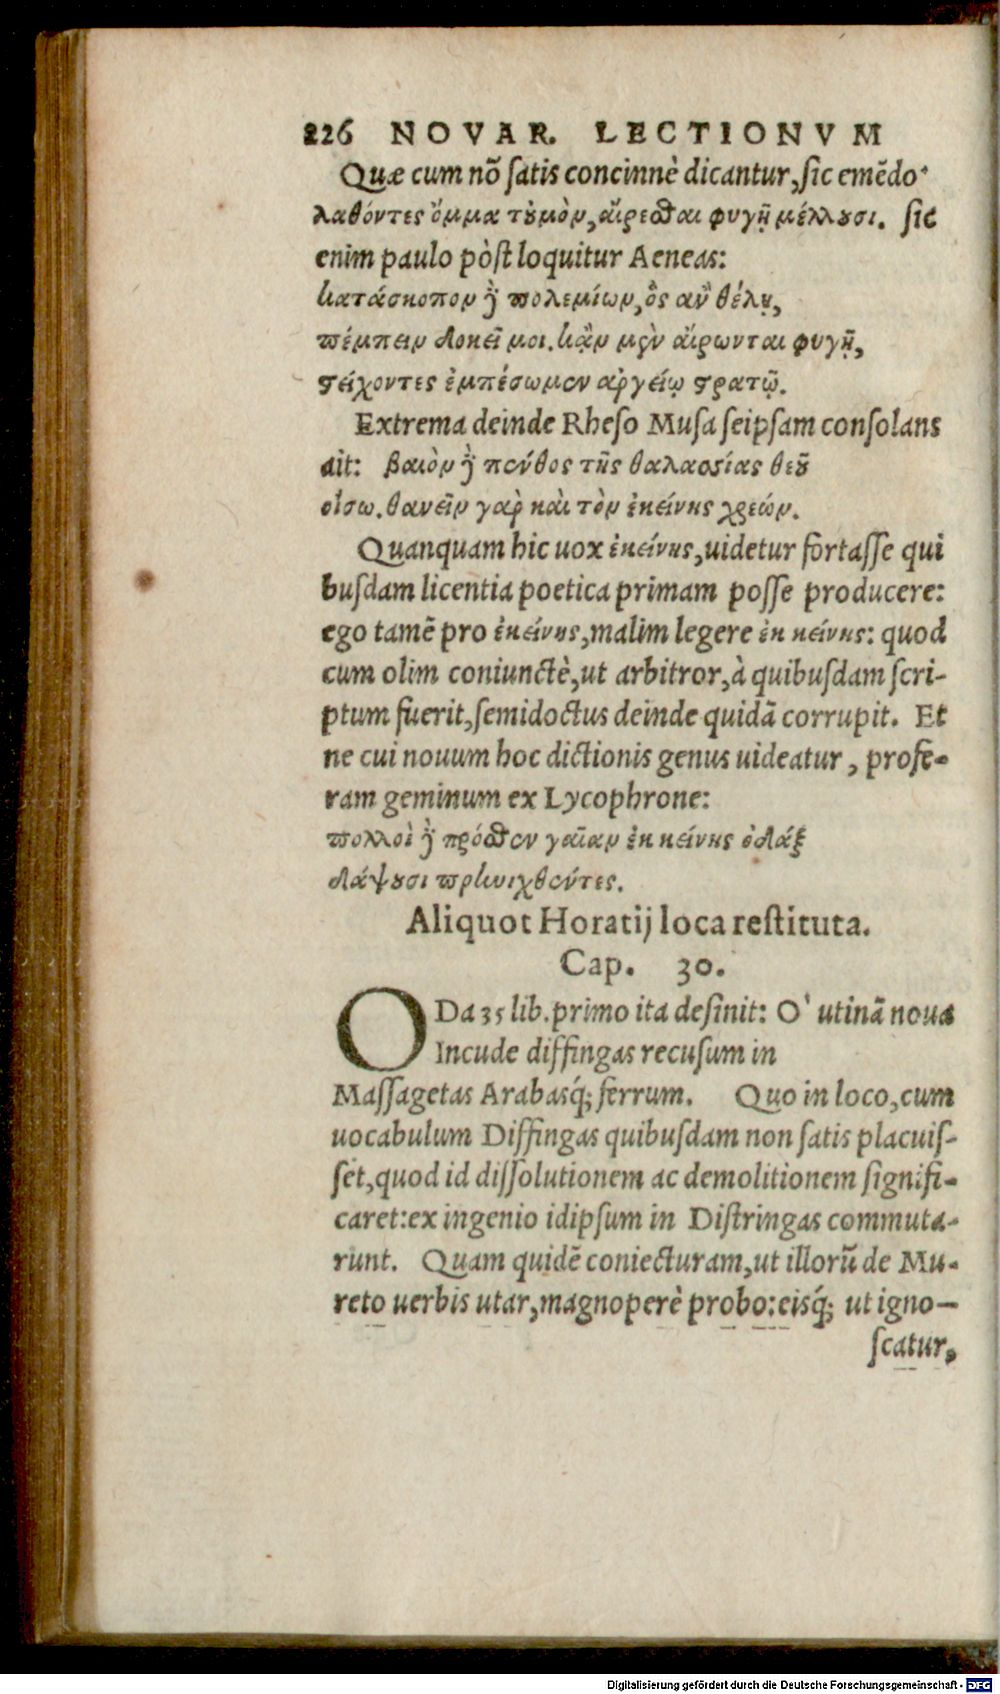 226 NOVAR. LECTIONVM
Quæ cum nõ satis concinnè dicantur, sic emẽdo·
λαθόντες ὄμμα τοὐμὸν, αἴρεσθαι φυγῇ μέλλουσι. sic
enim paulo pòst loquitur Aeneas:
κατάσκοπον δὲ πολεμίων, ὃς ἂν θέλῃ,
πέμπειν δοκεῖ μοι. κἂν μὲν αἴρωνται φυγῇ,
στείχοντες ἐμπέσωμεν ἀργείῳ στρατῷ.
Extrema deinde Rheso Musa seipsam consolans
ait: βαιὸν δὲ πένθος τῆς θαλασσίας θεοῦ
οἴσω. θανεῖν γὰρ καὶ τὸν ἐκείνης χρεών.
Quanquam hic uox ἐκείνης, uidetur fortasse qui
busdam licentia poetica primam posse producere:
ego tamẽ pro ἐκείνης, malim legere ἐκ κείνης: quod
cum olim coniunctè, ut arbitror, à quibusdam scri-
ptum fuerit, semidoctus deinde quidã corrupit. Et
ne cui nouum hoc dictionis genus uideatur, profe-
ram geminum ex Lycophrone:
πολλοὶ δὲ πρόσθεν γαῖαν ἐκ κείνης ὀδάξ
δάψουσι πρηνιχθέντες.
Aliquot Horatij loca restituta.
Cap. 30.
ODa 35 lib. primo ita desinit: O' utinã noua
Incude diffingas recusum in
Massagetas Arabasq́; ferrum. Quo in loco, cum
uocabulum Diffingas quibusdam non satis placuis-
set, quod id dissolutionem ac demolitionem signifi-
caret: ex ingenio idipsum in Distringas commuta-
runt. Quam quidẽ coniecturam, ut illorũ de Mu-
reto uerbis utar, magnoperè probo: eisq́; ut igno-
scatur,
Digitalisierung gefördert durch die Deutsche Forschungsgemeinschaft - DFG